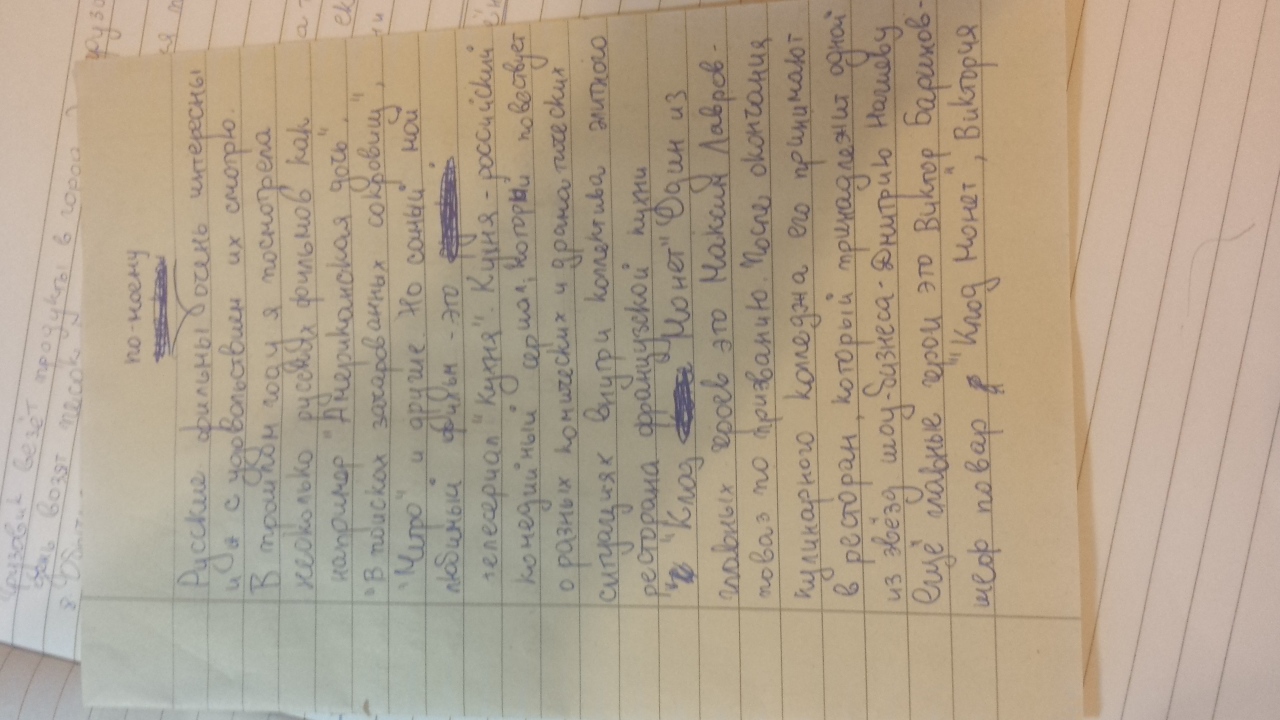 по-моему
Русские фильмы очень интересны
и с удовольствием их смотрю.
В прошлом году я посмотрела
несколько русских фильмов как
например "Американская дочь",
"В поисках захарованных сокровищ",
"Метро" и другие. Но самый мой
любимый фильм - это
телесериал "Кухня". Кухня - российский
комедийный сериал, который повествует
о разных комических и драматических
ситуациях внутри коллектива элитного
ресторана французской кухни
"Клод Монет" Один из
главных героев это Максим Лавров -
поваз по призванию. После окончания
кулинарного колледжа его принимают
в ресторан, который принадлежит одной
из звёзд шоу-бизнеса - Дмитрию Нагиеву
Ещё главные герои это Виктор Баринов -
шеф повар "Клод Монет", Виктория
Грузовик везёт
возят песок
продукты в город